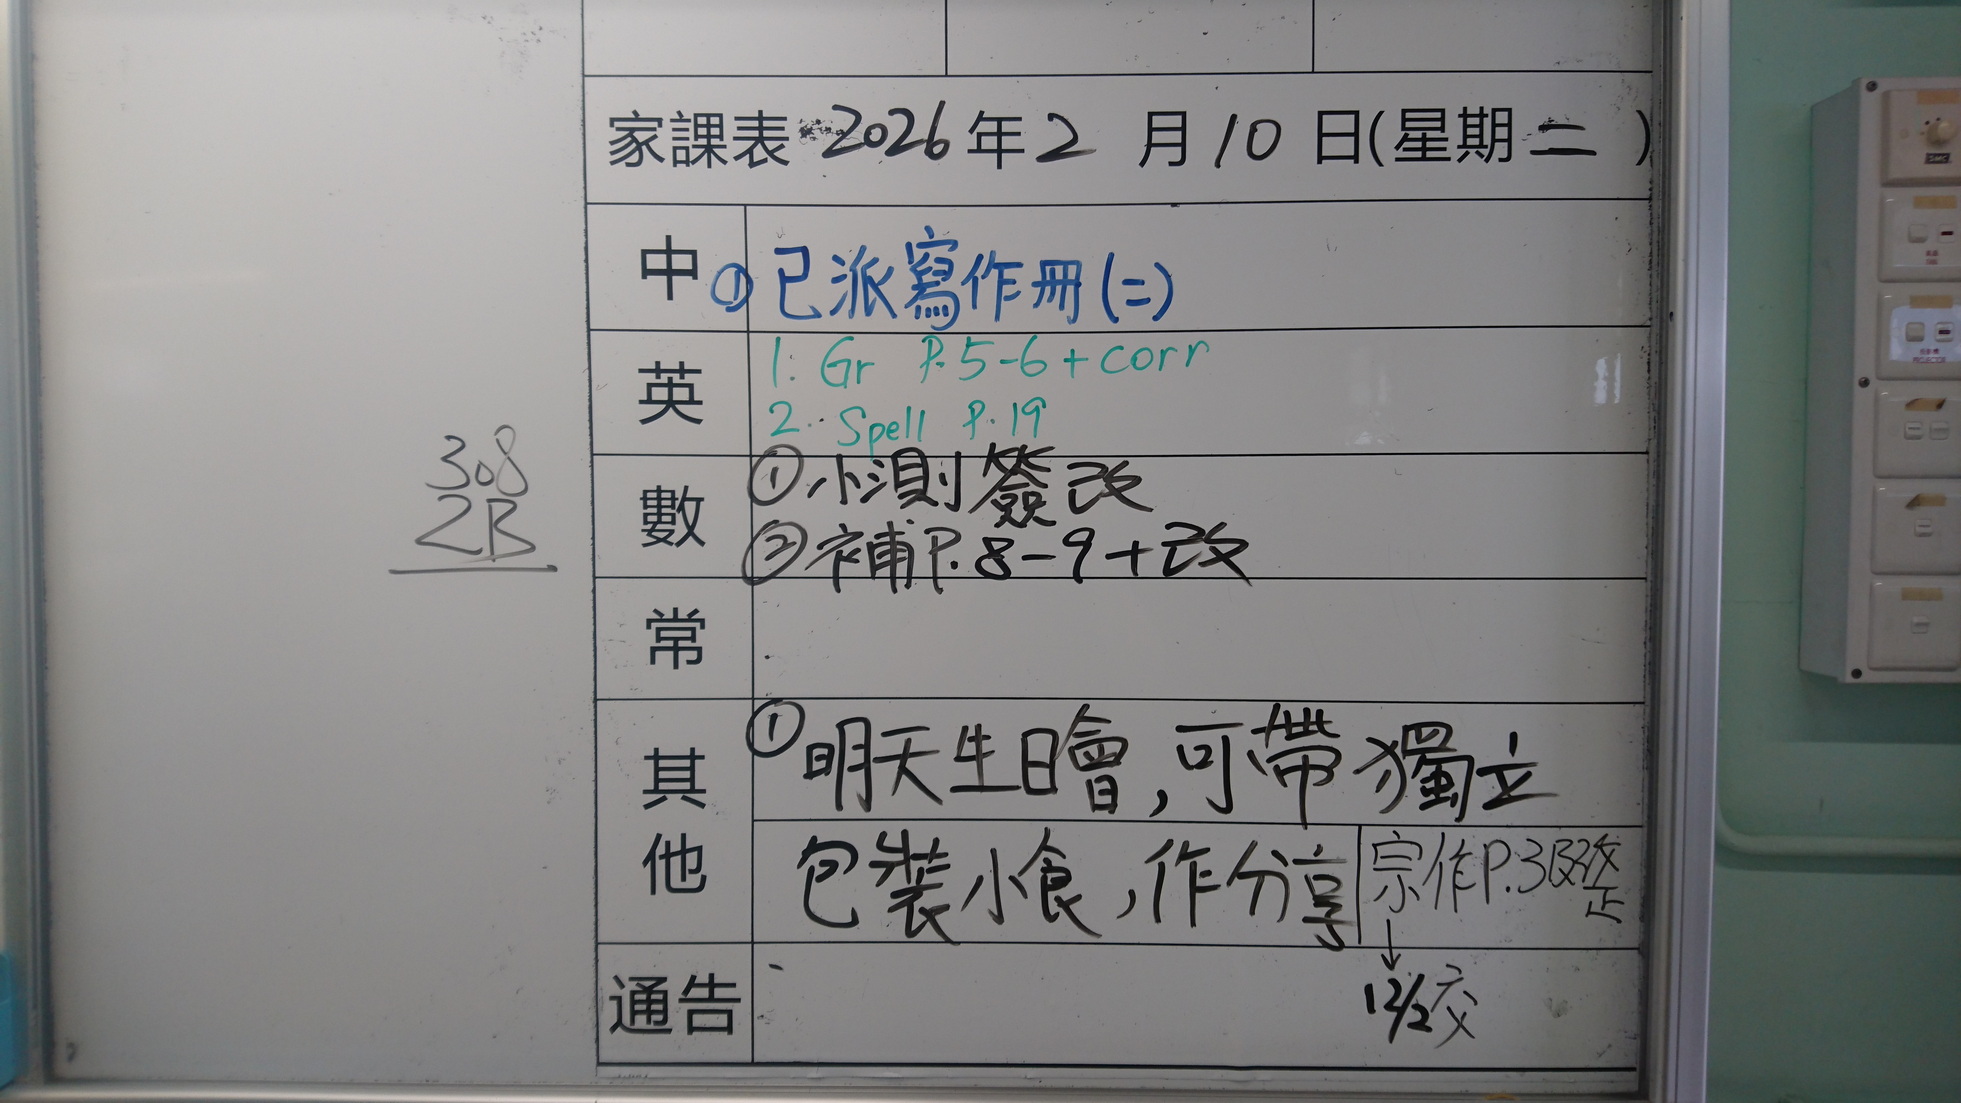 家課表 2026年2月10日(星期二)
中 ① 已派寫作冊(二)
英 1. Gr P.5-6+corr
2. Spell P.19
308
2B
數 ①小測簽改
②補P.8-9+改
常
其他 ①明天生日會,可帶獨立
包裝小食,作分享
宗作P.3及改正
↓
12/2交
通告